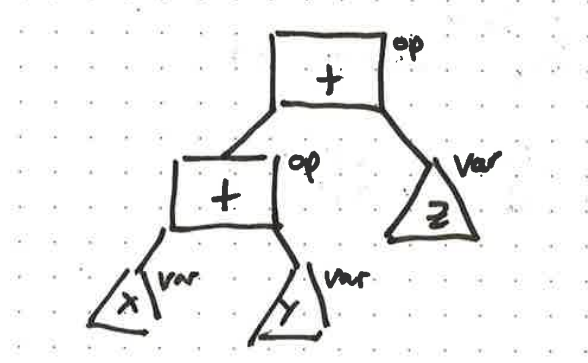 + op
+ op
Var
Z
X var
Y var